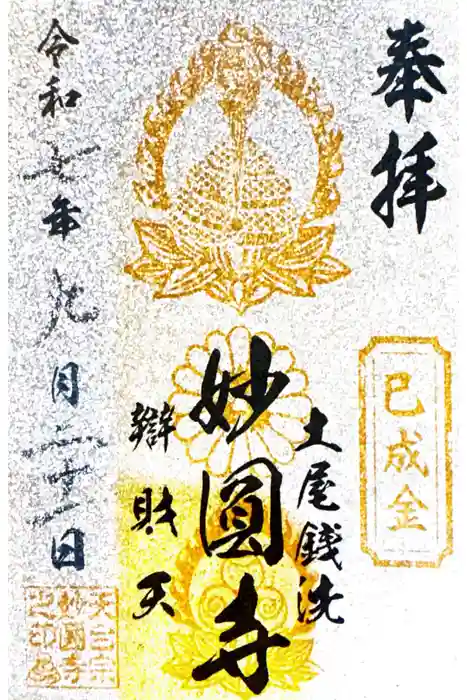 奉拝
巳成金
土尾銭洗
妙圓寺
辯財天
令和七年九月二十一日
天台宗
妙圓寺